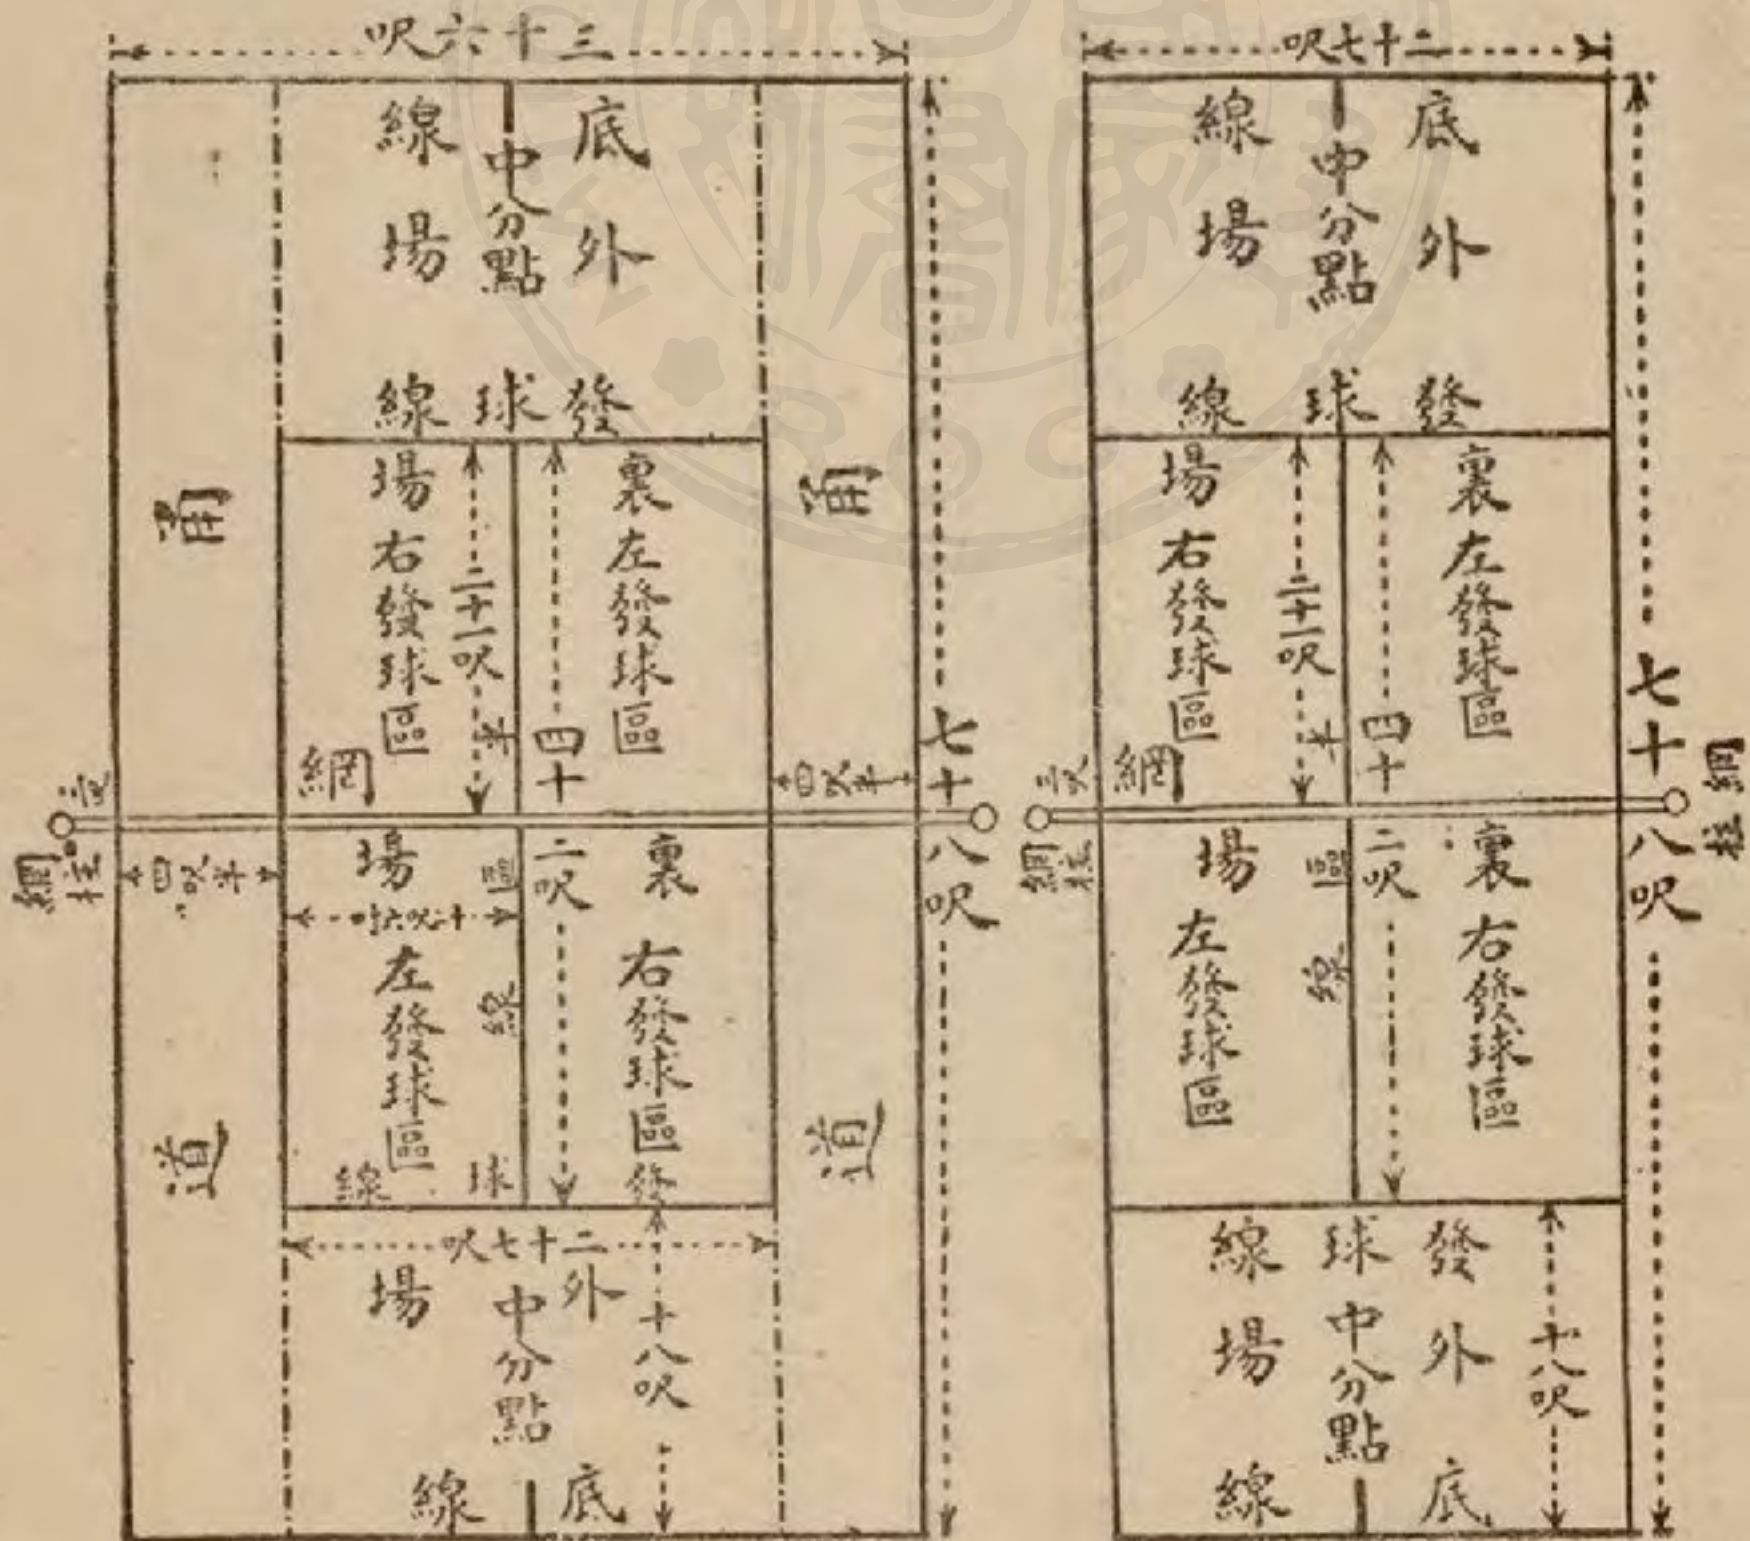 二十七呎
底線
中分點
外場
發球線
裏場
左發球區
右發球區
二十一呎
半區線
四十二呎
七十八呎
網
網柱
三呎
網柱
裏場
右發球區
左發球區
發球線
外場
中分點
十八呎
底線
三十六呎
底線
中分點
外場
發球線
甬道
甬道
裏場
左發球區
右發球區
二十一呎
半區線
四十二呎
七十八呎
四呎半
網
三呎
網柱
四呎半
裏場
右發球區
左發球區
十三呎六吋
發球線
二十七呎
外場
中分點
十八呎
底線